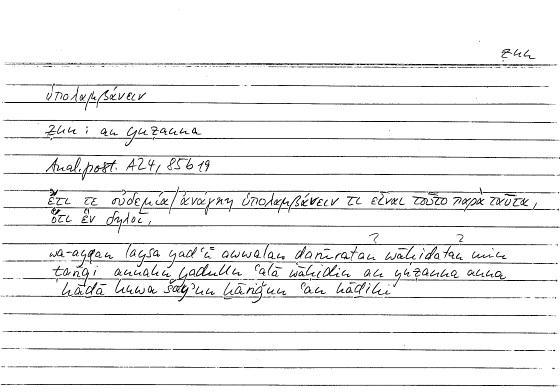 ẓnn
ὑπολαμβάνειν
ẓnn : an yuẓanna
Anal. post. A 24, 85b19
ἔτι τε οὐδεμία / ἀνάγκη ὑπολαμβάνειν τι εἶναι τοῦτο παρὰ ταῦτα,
ὅτι ἓν δηλοῖ,
? ?
wa-ayḍan laysa yadʿū awwalan ḍarūratan wāḥidatan min
annahū yadullu ʿalā wāḥidin an yuẓanna anna
hāḏā huwa šayʾun ḫāriǧun ʿan hāḏihi